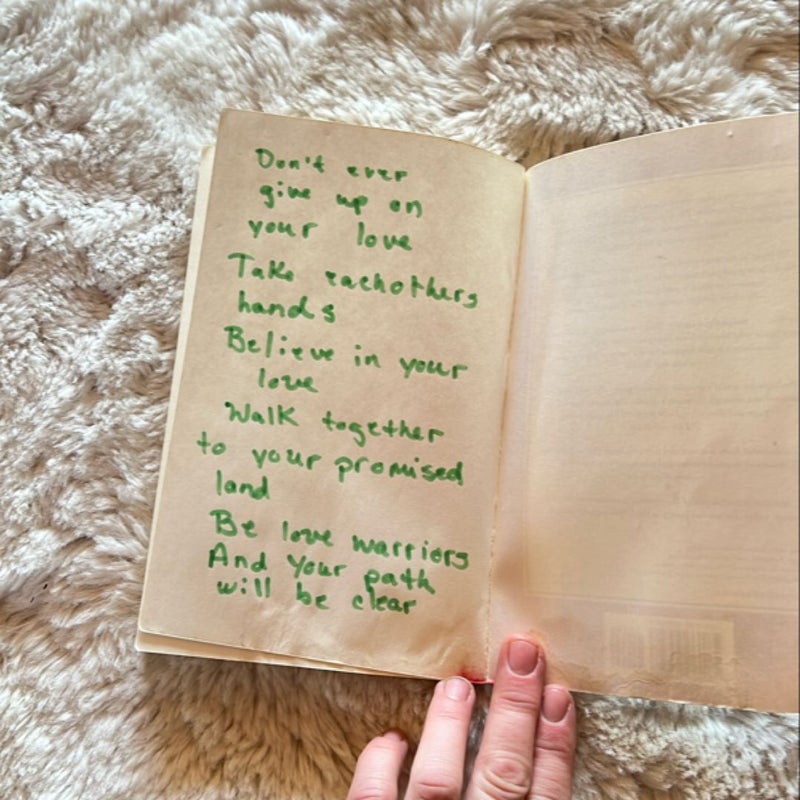 Don't ever
give up on
your love
Take eachothers
hands
Believe in your
love
Walk together
to your promised
land
Be love warriors
And your path
will be clear